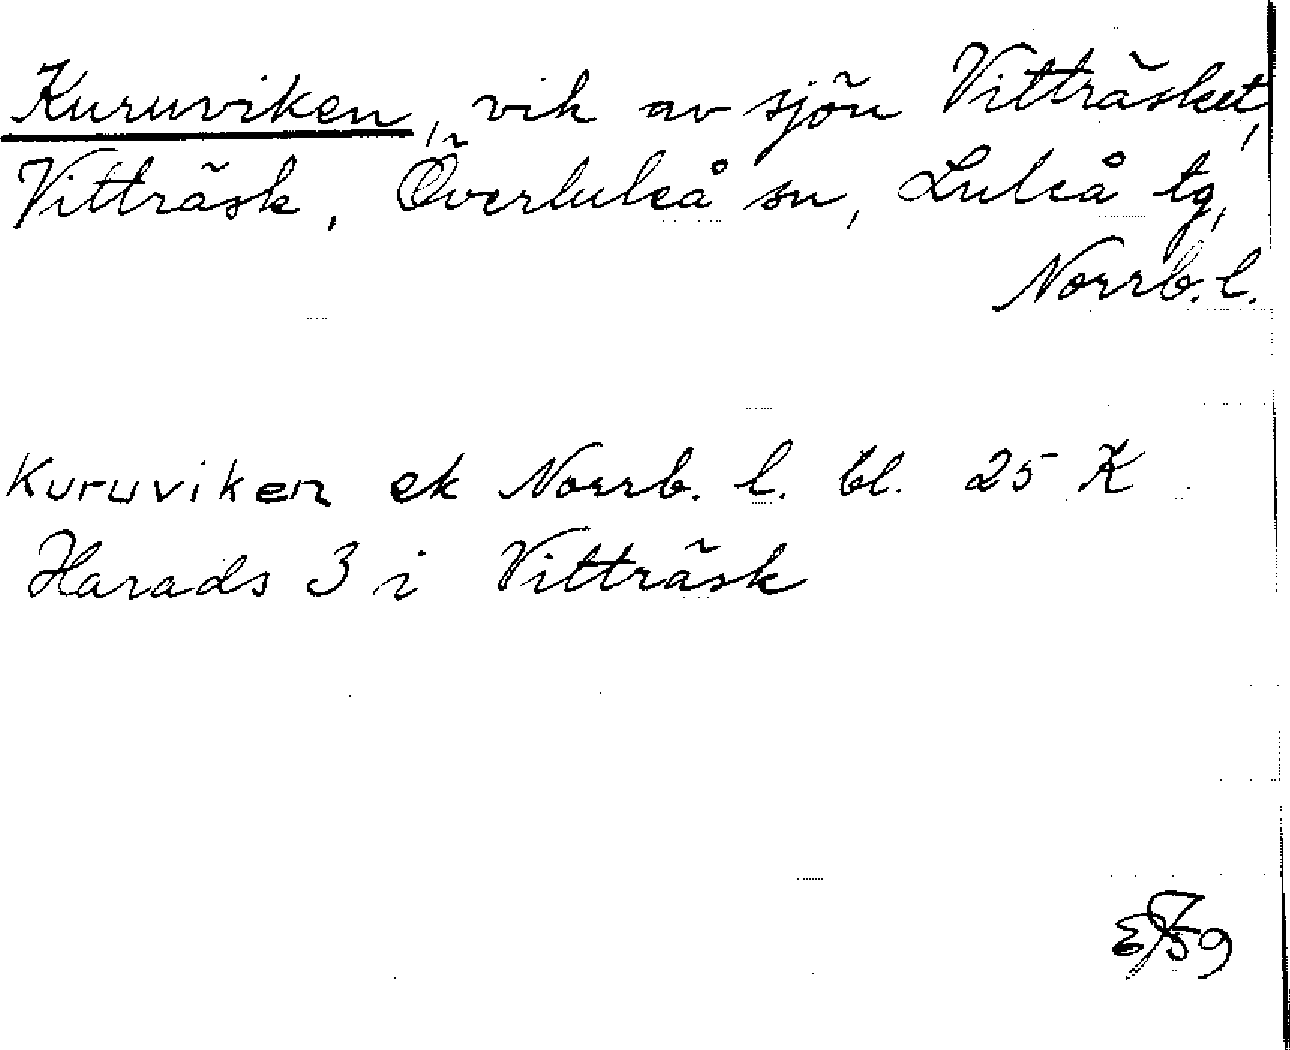 Kuruviken, vik av sjön Vitträsket,
Vitträsk, Överluleå sn, Luleå tg,
Norrb. l.
Kuruviken ek Norrb. l. bl. 25 K
Harads 3 i Vitträsk